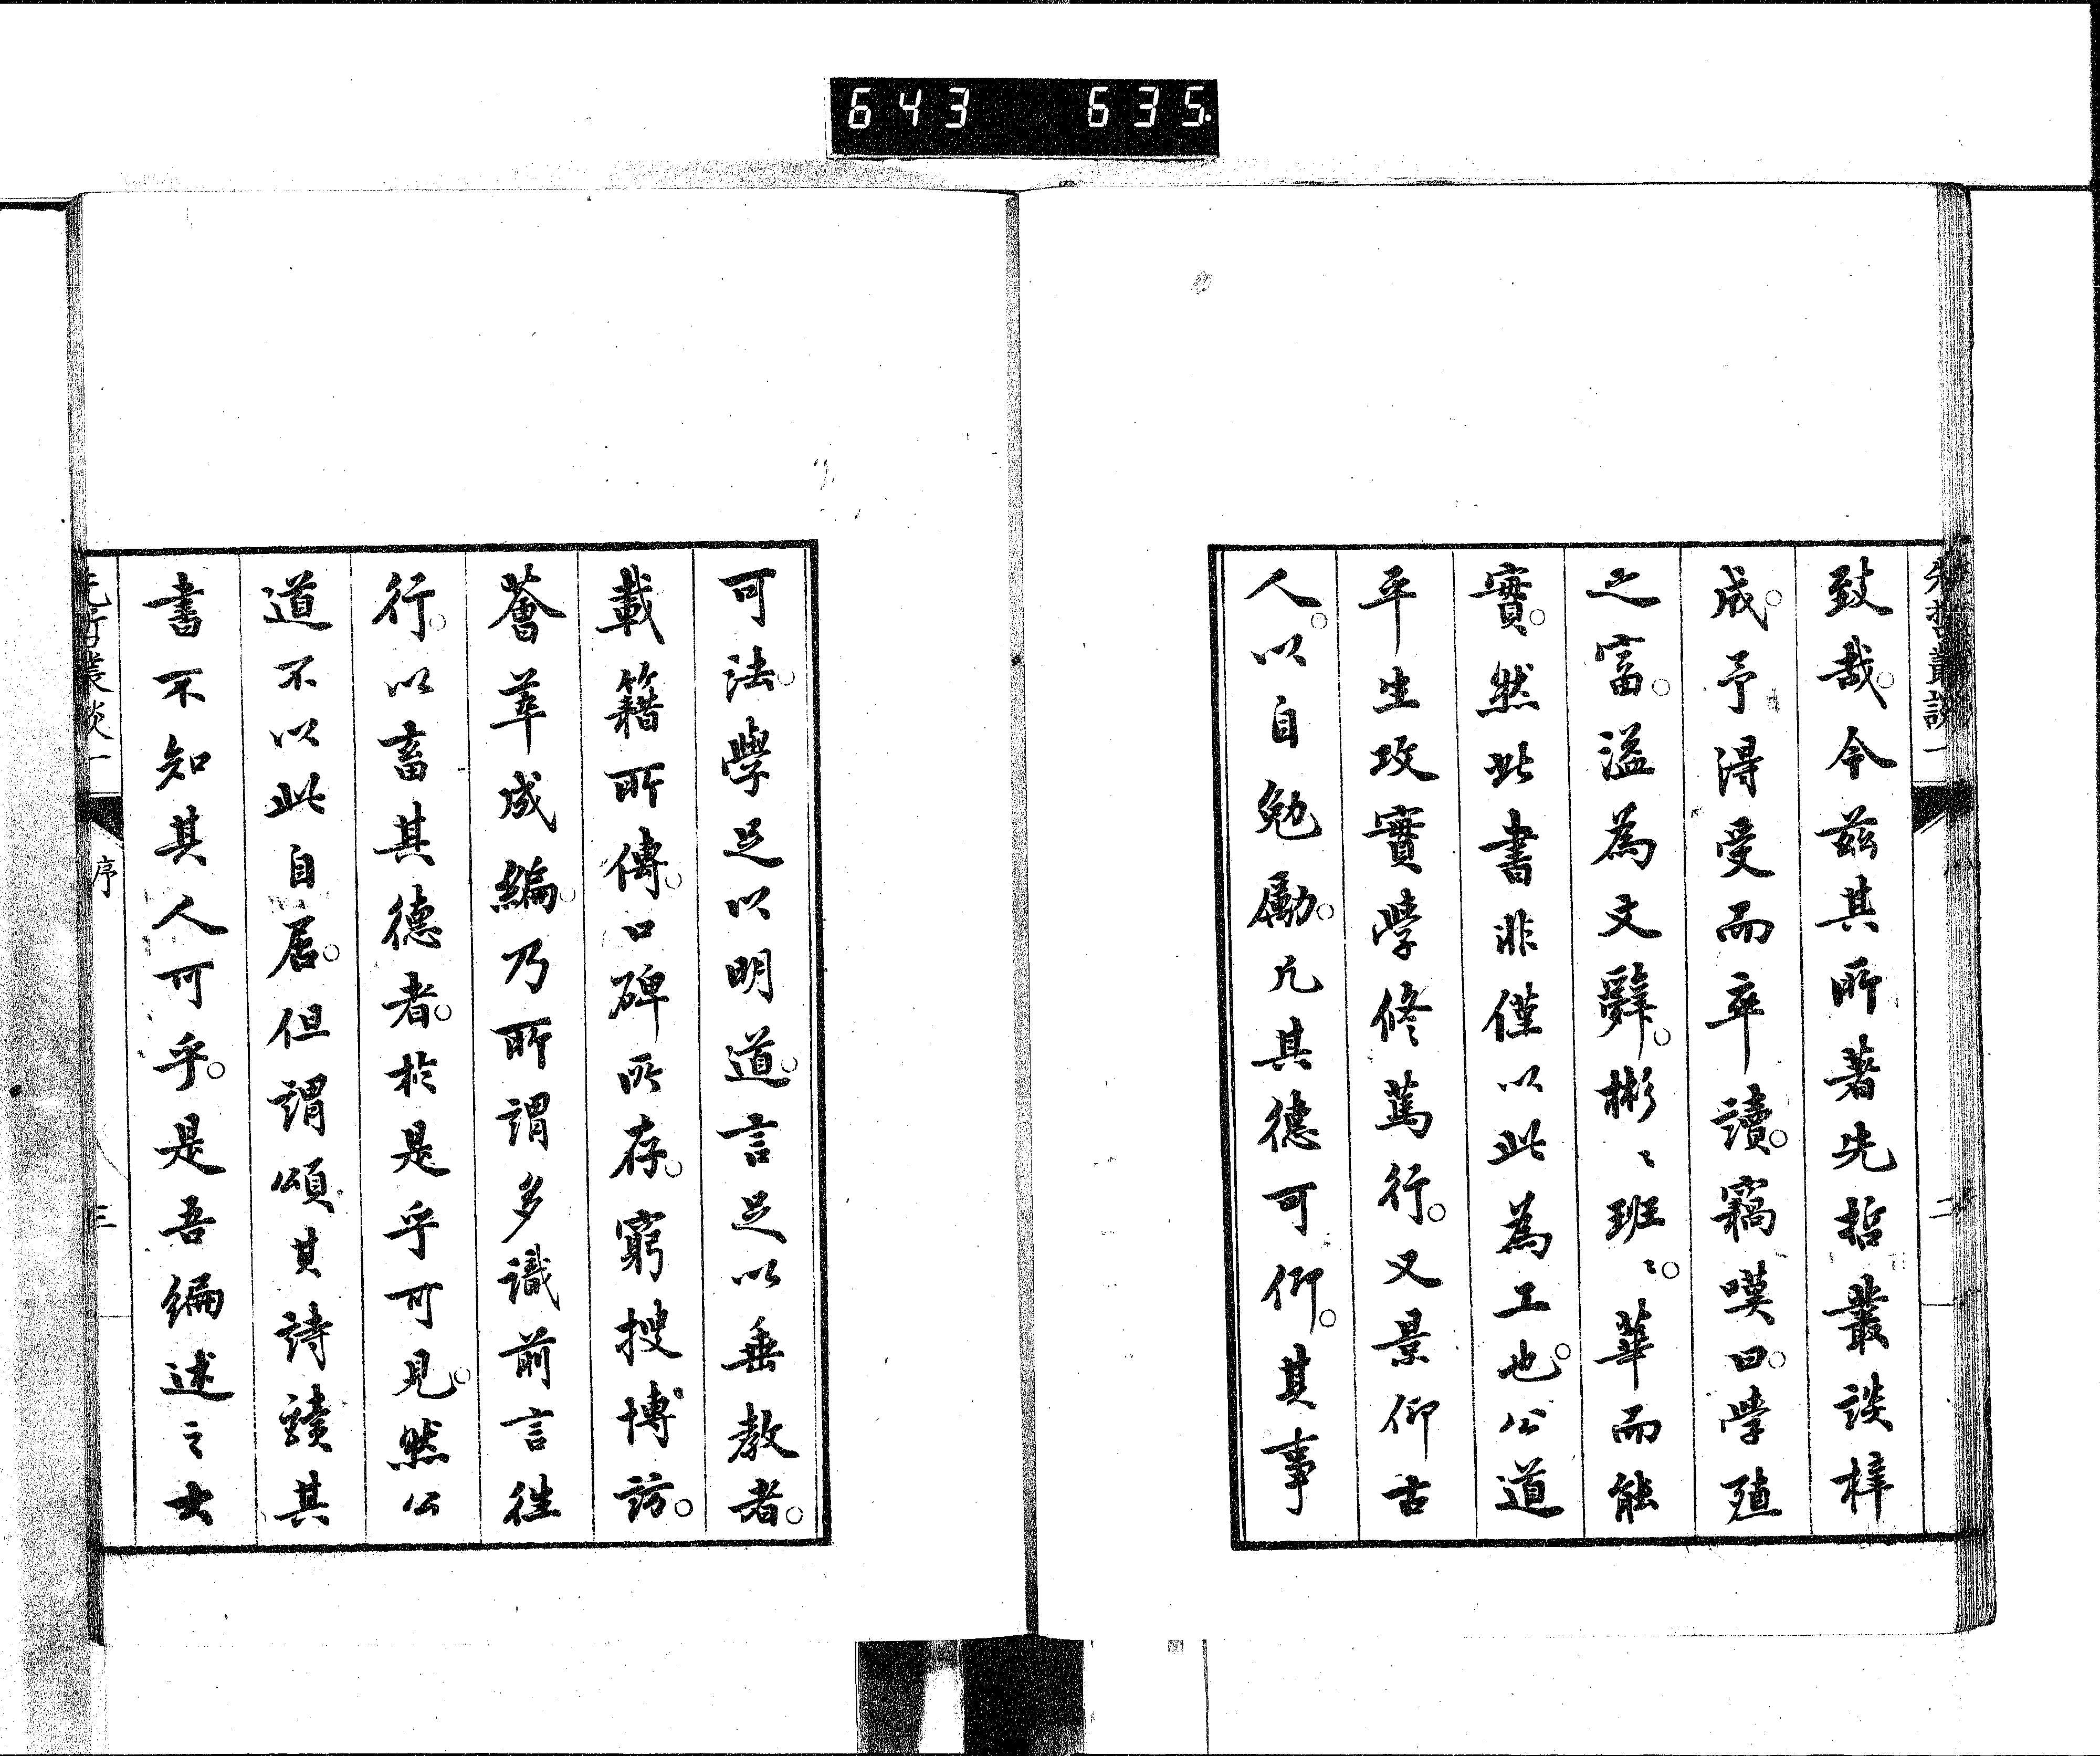 643 635
先哲叢談一 二
致哉。今茲其所著先哲叢談梓
成。予得受而卒讀。竊嘆曰。學殖
之富。溢為文辭。彬〻班〻。華而能
實。然此書非僅以此為工也。公道
平生攻實學修篤行。又景仰古
人。以自勉勵。凡其德可仰。其事
可法。學足以明道。言足以垂教者。
載籍所傳。口碑所存。窮搜博訪。
薈萃成編。乃所謂多識前言往
行。以畜其德者。於是乎可見。然公
道不以此自居。但謂頌其詩讀其
書不知其人可乎。是吾編述之大
先哲叢談一 序 三